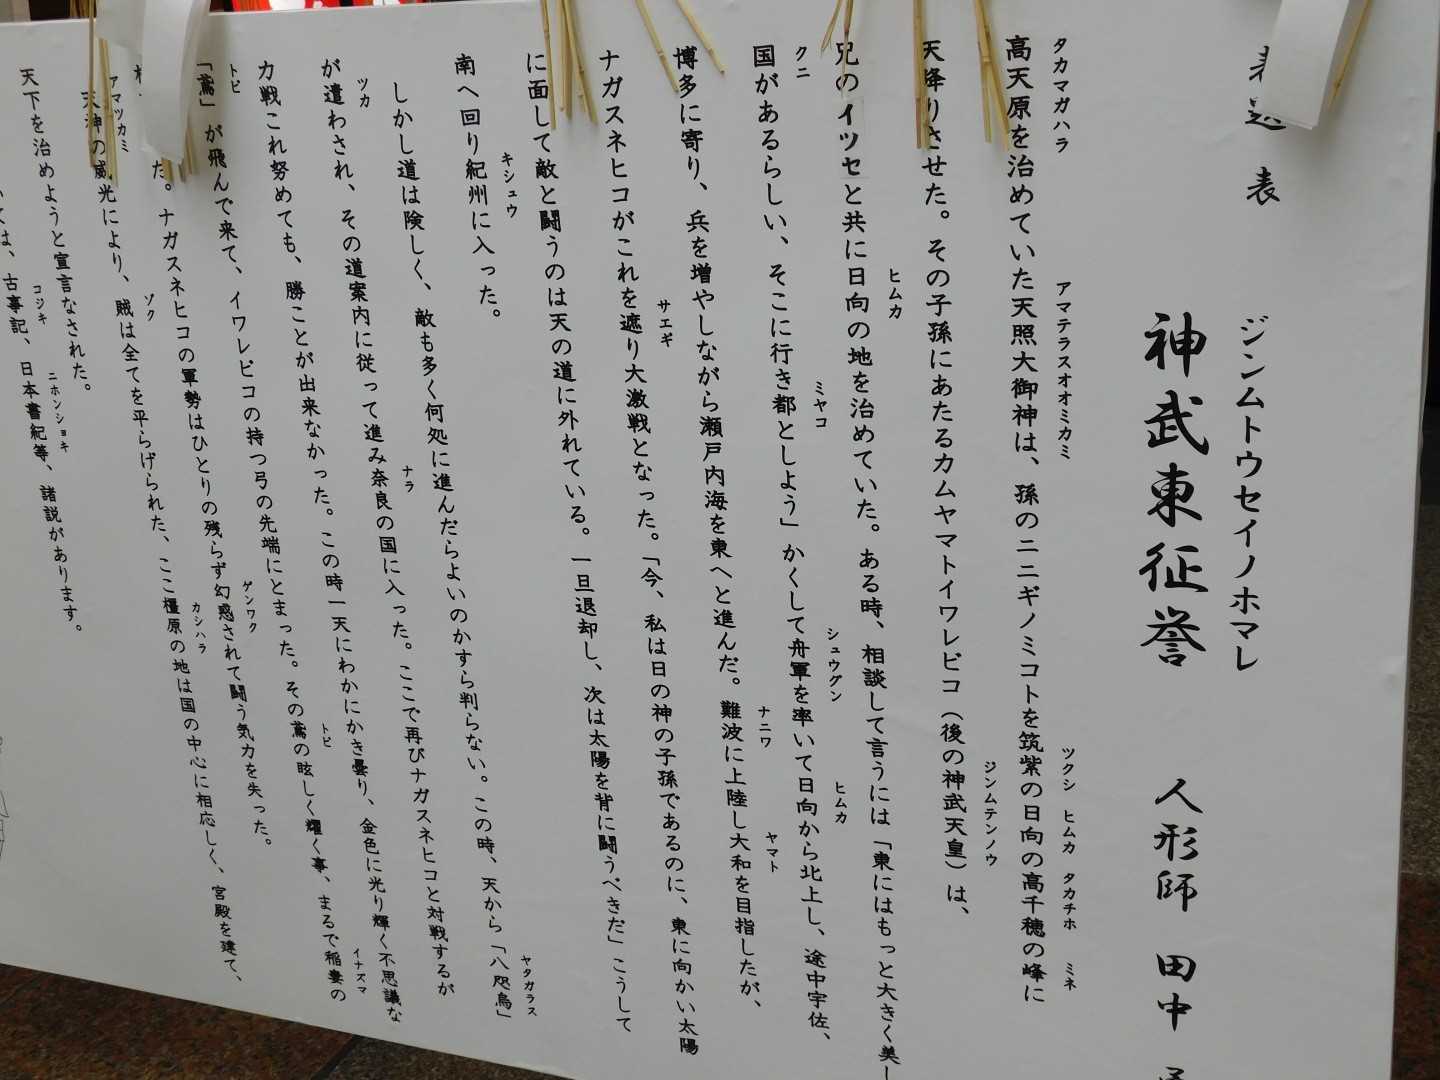 表題 表 神武東征誉 人形師 田中
ジンムトウセイノホマレ
タカマガハラ アマテラスオオミカミ ツクシ ヒムカ タカチホ ミネ
高天原を治めていた天照大御神は、孫のニニギノミコトを筑紫の日向の高千穂の峰に
ジンムテンノウ
天降りさせた。その子孫にあたるカムヤマトイワレビコ（後の神武天皇）は、
ヒムカ
兄のイツセと共に日向の地を治めていた。ある時、相談して言うには「東にはもっと大きく美し
クニ ミヤコ シュウグン ヒムカ
国があるらしい、そこに行き都としよう」かくして舟軍を率いて日向から北上し、途中宇佐、
ナニワ ヤマト
博多に寄り、兵を増やしながら瀬戸内海を東へと進んだ。難波に上陸し大和を目指したが、
サエギ
ナガスネヒコがこれを遮り大激戦となった。「今、私は日の神の子孫であるのに、東に向かい太陽
に面して敵と闘うのは天の道に外れている。一旦退却し、次は太陽を背に闘うべきだ」こうして
キシュウ
南へ回り紀州に入った。
ヤタガラス
しかし道は険しく、敵も多く何処に進んだらよいのかすら判らない。この時、天から「八咫烏」
ツカ ナラ
が遣わされ、その道案内に従って進み奈良の国に入った。ここで再びナガスネヒコと対戦するが
力戦これ努めても、勝ことが出来なかった。この時一天にわかにかき曇り、金色に光り輝く不思議な
トビ トビ イナズマ
「鳶」が飛んで来て、イワレビコの持つ弓の先端にとまった。その鳶の眩しく耀く事、まるで稲妻の
ゲンワク
た。ナガスネヒコの軍勢はひとりの残らず幻惑されて闘う気力を失った。
アマツカミ ゾク カシハラ
天神の威光により、賊は全てを平らげられた、ここ橿原の地は国の中心に相応しく、宮殿を建て、
天下を治めようと宣言なされた。
コジキ ニホンショキ
ては、古事記、日本書紀等、諸説があります。